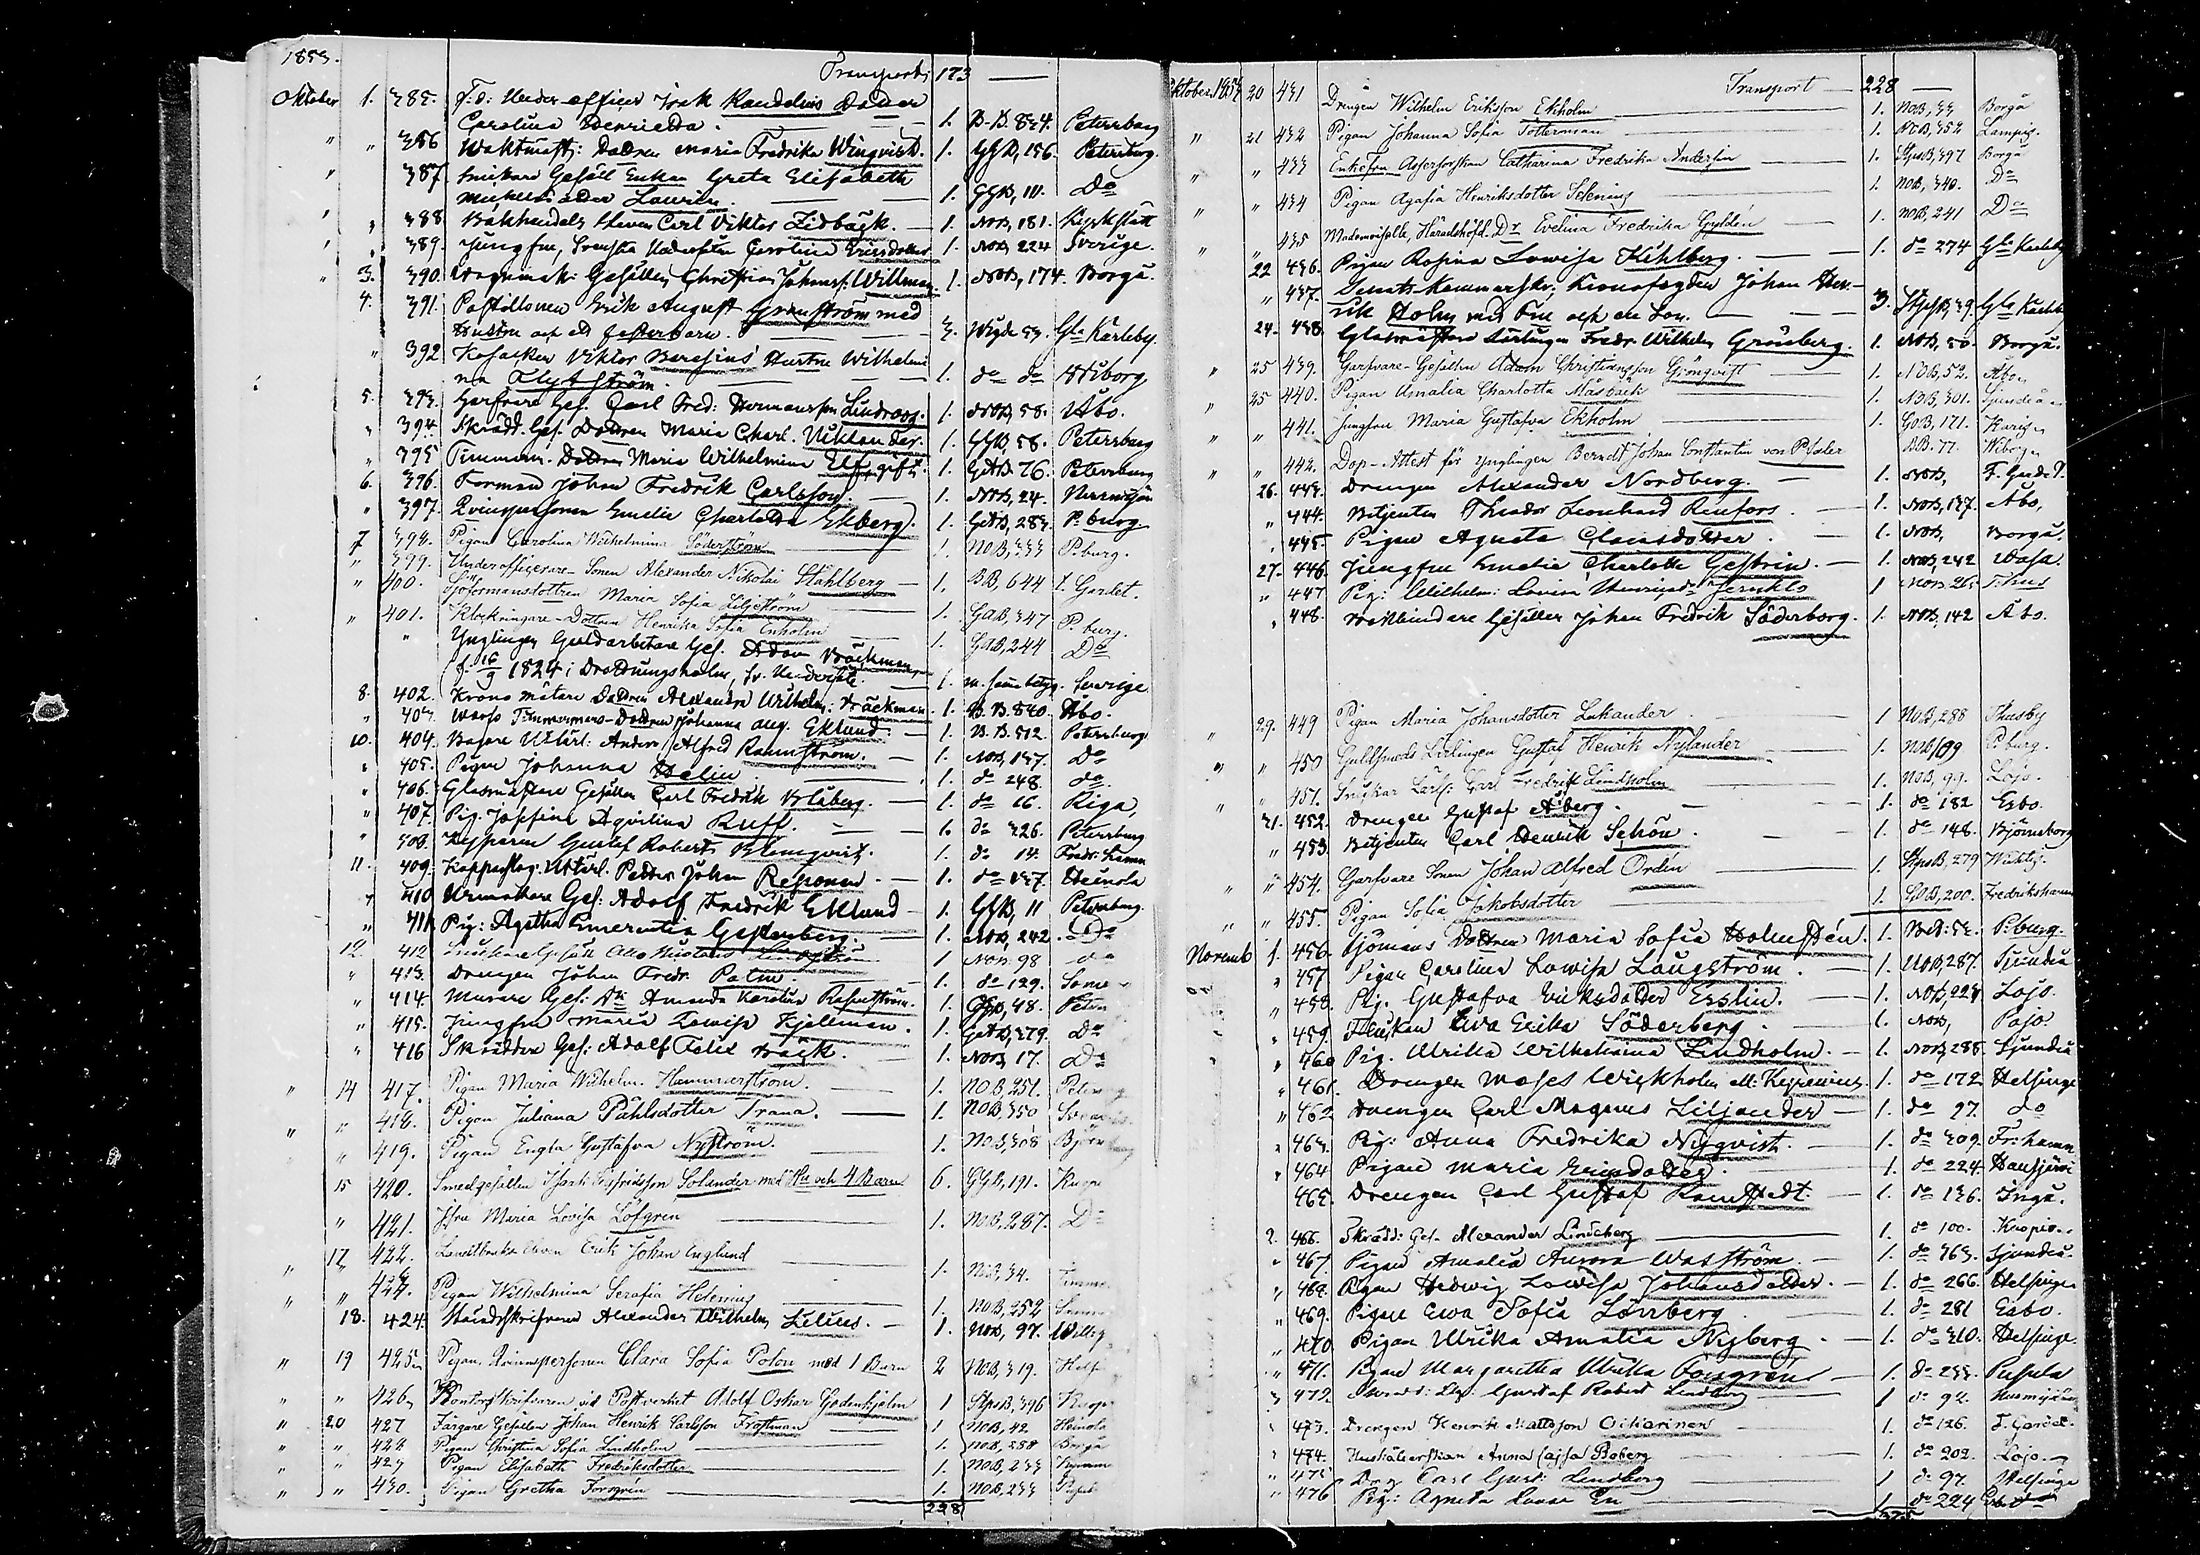 1853.
Transport 173 —
Oktober 1. 385. F. d. Under-officer Isak Randelins Datter
Carolina Henrietta. — 1. B.B. 834. Petersburg
" " 386 Waktmäst: Dottren Maria Fredrika Winqvist. 1. GGB, 156. Petersburg.
" 387 Snickare Gesäll Enkan Greta Elisabeth
Michelsdotter Laurén. — 1. GGB, 111. Do
" " 388 Bokhandels Eleven Carl Viktor Lidbäck. — 1. NoB, 181. Kyrkslätt
" " 389 Jungfru, Svenska Undersåten Carolina Ericsdotter 1. NoB, 224 Sverige.
" 3. 390. Wagnmak: Gesällen Christian Johanss: Willman 1. NoB, 174. Borgå.
4. 391. Postillonen Erik August Granström med
Hustru och ett fosterbarn. — 3. 53. Gla Karleby.
" 392 Kosacken Viktor Baresins Hustru Wilhelmi
na Flygtström. — 1. do do Wiborg
5. 393. Garfvare Ges. Carl Fred: Hermansson Lindroos. 1. NoB, 58. Åbo.
" 394. Skrädd. Ges. Dottren Maria Charl. Viktander. 1. GGB, 58. Petersburg
" 395 Timmerm. Dottren Maria Wilhelmina Elfgrén. 1. GAB 76. Petersburg
6. 396. Forman Johan Fredrik Carlsson. — 1. NoB, 24. Nurmijärvi
" 397. Qvinspersonen Emelie Charlotta Ekberg. 1. GAB, 283. P.burg.
7 398. Pigan Carolina Wilhelmina Söderström — 1. NoB, 333 P.burg.
" 399. Underofficerare-Sonen Alexander Nikolai Stahlberg — 1. BB, 644 T. Gardet.
" 400. Sjöformansdottren Maria Sofia Liljeström — 1. GAB, 347 P. burg.
" 401. Klockringare-Dottren Henrika Sofia Enholm — 1. GAB, 244 Do
" Ynglingen Guldarbetare Ges. Adam Bäckman,
f. 16/9 1824 i Drottningholm, Sv. Undersåte. — 1. Sverige
8. 402. Krono mätare Dottren Alexandra Wilhelm: Bäckman. 1. B.B. 840. Åbo.
" 403. Warfs Timmermans-Dottren Johanna Aug. Eklund. — 1. B.B. 512. Petersburg
10. 404. Bagare Utlärl: Anders Alfred Rahmström. — 1. NoB, 157. Do
" 405. Pigan Johanna Helin — 1. do 248. do
" 406. Glasmästare Gesällen Carl Fredrik Blåberg. — 1. do 16. Riga,
" 407. Pig. Josefina Agvilina Ruff. — 1. do 326. Petersburg
" 408. Kypparen Gustaf Robert Blomqvist. 1. do 14. Fredr: hamn
11. 409. Kopparslag: Utlärl. Petter Johan Reponen. — 1. do 137. Heinola
" 410 Urmakare Ges: Adolf Fredrik Eklund — 1. GGB, 11 Petersburg.
" 411. Pig: Agatha Emerentia Gestenberg. — 1. NoB, 242. Do
12. 412 Snickare Gesäll Otto Gustaf — 1 NoB. 98 do
" 413. Drengen Johan Fredr. Palm — 1. do 129. Some
" 414. Murare Ges: Dr. Amanda Karolina Rosenström. 1. GGB, 48. Peters
" 415. Jungfru Maria Lowisa Kjellman. — 1. GAB, 379. Do
" 416 Skräddare Ges: Adolf Felix Bäck. 1. NoB, 17. Do
" 14 417. Pigan Maria Wilhelm. Hammarström. — 1. NOB, 251. Peters
" " 418. Pigan Juliana Påhlsdotter Trana. — 1. NOB, 350
" " 419. Pigan Engla Gustafva Nyström. 1. NoB, 308 Björn
15 420. Smedgesällen Isak Sigfridsson Solander med Hu och 4 Barn 6. GGB, 191. Kuop
" 421. Jfru Maria Lovisa Löfgren — 1. NoB, 287. Do
" 17 422. Landtbruks Eleven Erik Johan Englund — 1. NoB, 34.
" " 423. Pigan Wilhelmina Serafia Helenius — 1. NoB, 252
18. 424. Handskrifvaren Alexander Wilhelm Lilius. — 1. NoB, 97.
" 19 425. Pigan, Qvinnspersonen Clara Sofia Polon med 1 Barn 2 NoB, 319. Helf
" " 426. Kontorsskrifvaren vid Postverket Adolf Oskar Godenhjelm 1 StpsB, 396
" 20 427 Färgare Gesällen Johan Henrik Carlsson Frostman 1 NoB, 42. Heinola
" " 428 Pigan Christina Sofia Lindholm 1. NoB, 258 Borgå
" " 429 Pigan Elisabeth Fredriksdotter 1. NoB, 233
" " 430. Pigan Gretha Forsgrén 1. NOB, 233
228
Oktober 1853 Transport — 228 —
20 431 Drengen Wilhelm Eriksson Ekholm — 1. NoB, 33 Borgå
" 21 432 Pigan Johanna Sofia Tötterman — 1. NoB, 352 Lampis.
" " 433 Enkefru Catharina Fredrika Andersin — 1. StpsB, 397 Borgå
" " 434 Pigan Agafia Henriksdotter Selenius — 1. NoB, 340. Do
" " 435 Mademoiselle, Häradshöfd. Dr. Evelina Fredrika Gyldén — 1. NoB, 241 Do
22 436. Pigan Rosina Lowisa Kihlberg. — 1. do 274 Gla Karleby
" 437. Senats Kammarskr: Kronofogden Johan Hen-
rik Holm med Fru och en Son. — 3. StpsB, 39. Gla Karleb
24. 438. Glasmästare Lärlingen Fredr. Wilhelm Grönberg. 1. NoB, 50. Borgå.
" 25 439. Garfvare-Gesällen Adam Christiansson Grönqvist — 1. NOB, 52. Åbo
" 25 440. Pigan Amalia Charlotta Måsbäck — 1. NOB, 301. Sjundeå
" " 441. Jungfru Maria Gustafva Ekholm — 1. GOB, 171. Karis
" " 442. Dop-Attest för Ynglingen Berndt Johan Constantin von Pfaler BB. 77. Wiborg
26. 443. Drengen Alexander Nordberg. — 1. NoB, F. Garde
" 444. Betjenten Theodor Leonhard Renfors. — 1. NoB, 137. Åbo,
" 445. Pigan Agneta Claesdotter. — 1. NoB, Borgå.
27. 446. Jungfru Emelie Charlotte Gestrin. — 1. NoB, 242 Wasa.
" 447 Pig: Wilhelm: Lovisa Jernklo 1 NoB. 265
" 448. Bokbindare Gesällen Johan Fredrik Söderborg. 1. NoB, 142 Åbo.
" 29. 449 Pigan Maria Johansdotter Lukander — 1 NoB, 288 Thusby
" " 450 Guldsmeds Lärlingen Gustaf Henrik Nylander — 1. NoB, 109 P.burg.
" " 451. Snickar Lärl: Carl Fredrik Lindholm — 1. NoB, 99. Lojo.
31. 452. Drengen Gustaf Åberg. — 1. do 182 Esbo.
" 453. Betjenten Carl Henrik Schön. — 1. do 148. Björneborg
" " 454. Garfvare Sonen Johan Alfred Ordén — 1. StpsB, 279 Wichtis.
" " 455. Pigan Sofia Jakobsdotter — 1. GOB, 200. Fredrikshamn
Novemb 1. 456. Sjömans Dottren Maria Sofia Holmstén. 1. P.burg.
" 457 Pigan Carolina Lowisa Långström. — 1. NOB, 287. Sjundeå
" 458. Pig. Gustafva Eriksdotter Erslin. — 1. NoB, 224 Lojo.
" 459. Flickan Ewa Erika Söderberg. — 1. NoB, Pojo.
" 460 Pig. Ulrika Wilhelmina Lindholm. — 1. NoB, 288 Sjundeå
" 461. Drengen Moses Wickholm ell: Keyrenius. 1. do 172 Helsinge
" 462 Drengen Carl Magnus Liljander — 1. do 97. do
" 463. Pig: Anna Fredrika Nyqvist. — 1. do 309. Fr: hamn
" 464 Pigan Maria Ericsdotter. — 1. do 224. Hausjärvi
465. Drengen Carl Gustaf Ramstedt. — 1. do 136. Ingå.
2. 466. Skrädd: Ges. Alexander Lindberg — 1. do 100. Kuopio.
" 467. Pigan Amalia Aurora Wasström — 1. do 363. Sjundeå.
" 468. Pigan Hedwig Lowisa Johansdotter. — 1. do 266. Helsinge
" 469. Pigan Ewa Sofia Lönnberg — 1. do 281 Esbo.
" 470. Pigan Ulrika Amalia Nyberg — 1. do 310. Helsinge
" 471. Pigan Margaretha Ulrika Forsgren — 1. do 233. Pusula
" 472. Gustaf Robert Lindberg — 1 do 92. Nurmijärvi
" 473. Drengen Henrik Mattsson Oikarinen — 1. do 126. F. Gardet.
" 474. Hushållerskan Anna Cajsa Boberg — 1. do 202. Lojo.
" 475 Dreg Carl Gust: Lindberg — 1 do 97. Helsinge
" 476 Pig: Agneta En — 1 do 224,